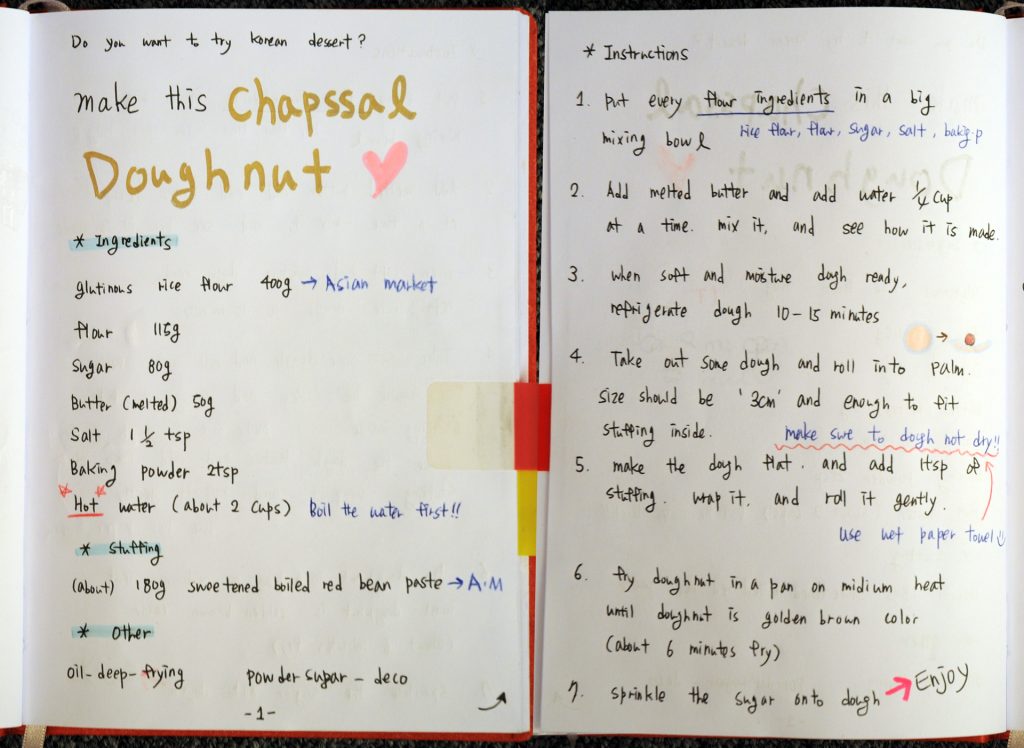 Do you want to try korean dessert?
make this Chapssal
Doughnut
* Ingredients
glutinous rice flour 400g → Asian market
flour 115g
Sugar 80g
Butter (melted) 50g
Salt 1 1/2 tsp
Baking powder 2tsp
Hot water (about 2 cups) Boil the water first!!
* Stuffing
(about) 180g sweetened boiled red bean paste → A.M
* Other
oil-deep-frying powder sugar - deco
-1-
* Instructions
1. put every flour ingredients in a big
mixing bowl rice flour, flour, sugar, salt, bakig.p
2. Add melted butter and add water 1/4 cup
at a time. mix it, and see how it is made.
3. when soft and moisture dough ready,
refrigerate dough 10-15 minutes
4. Take out some dough and roll into palm.
size should be '3cm' and enough to fit
stuffing inside. make sure to dough not dry!!
5. make the dough flat. and add 1tsp of
stuffing. wrap it. and roll it gently.
use wet paper towel
6. fry doughnut in a pan on midium heat
until doughnut is golden brown color
(about 6 minutes fry)
7. sprinkle the sugar onto dough → Enjoy